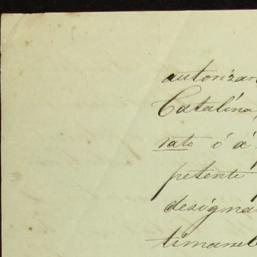 autorizan
Catalina,
rato ó á
petente
designa
timamet